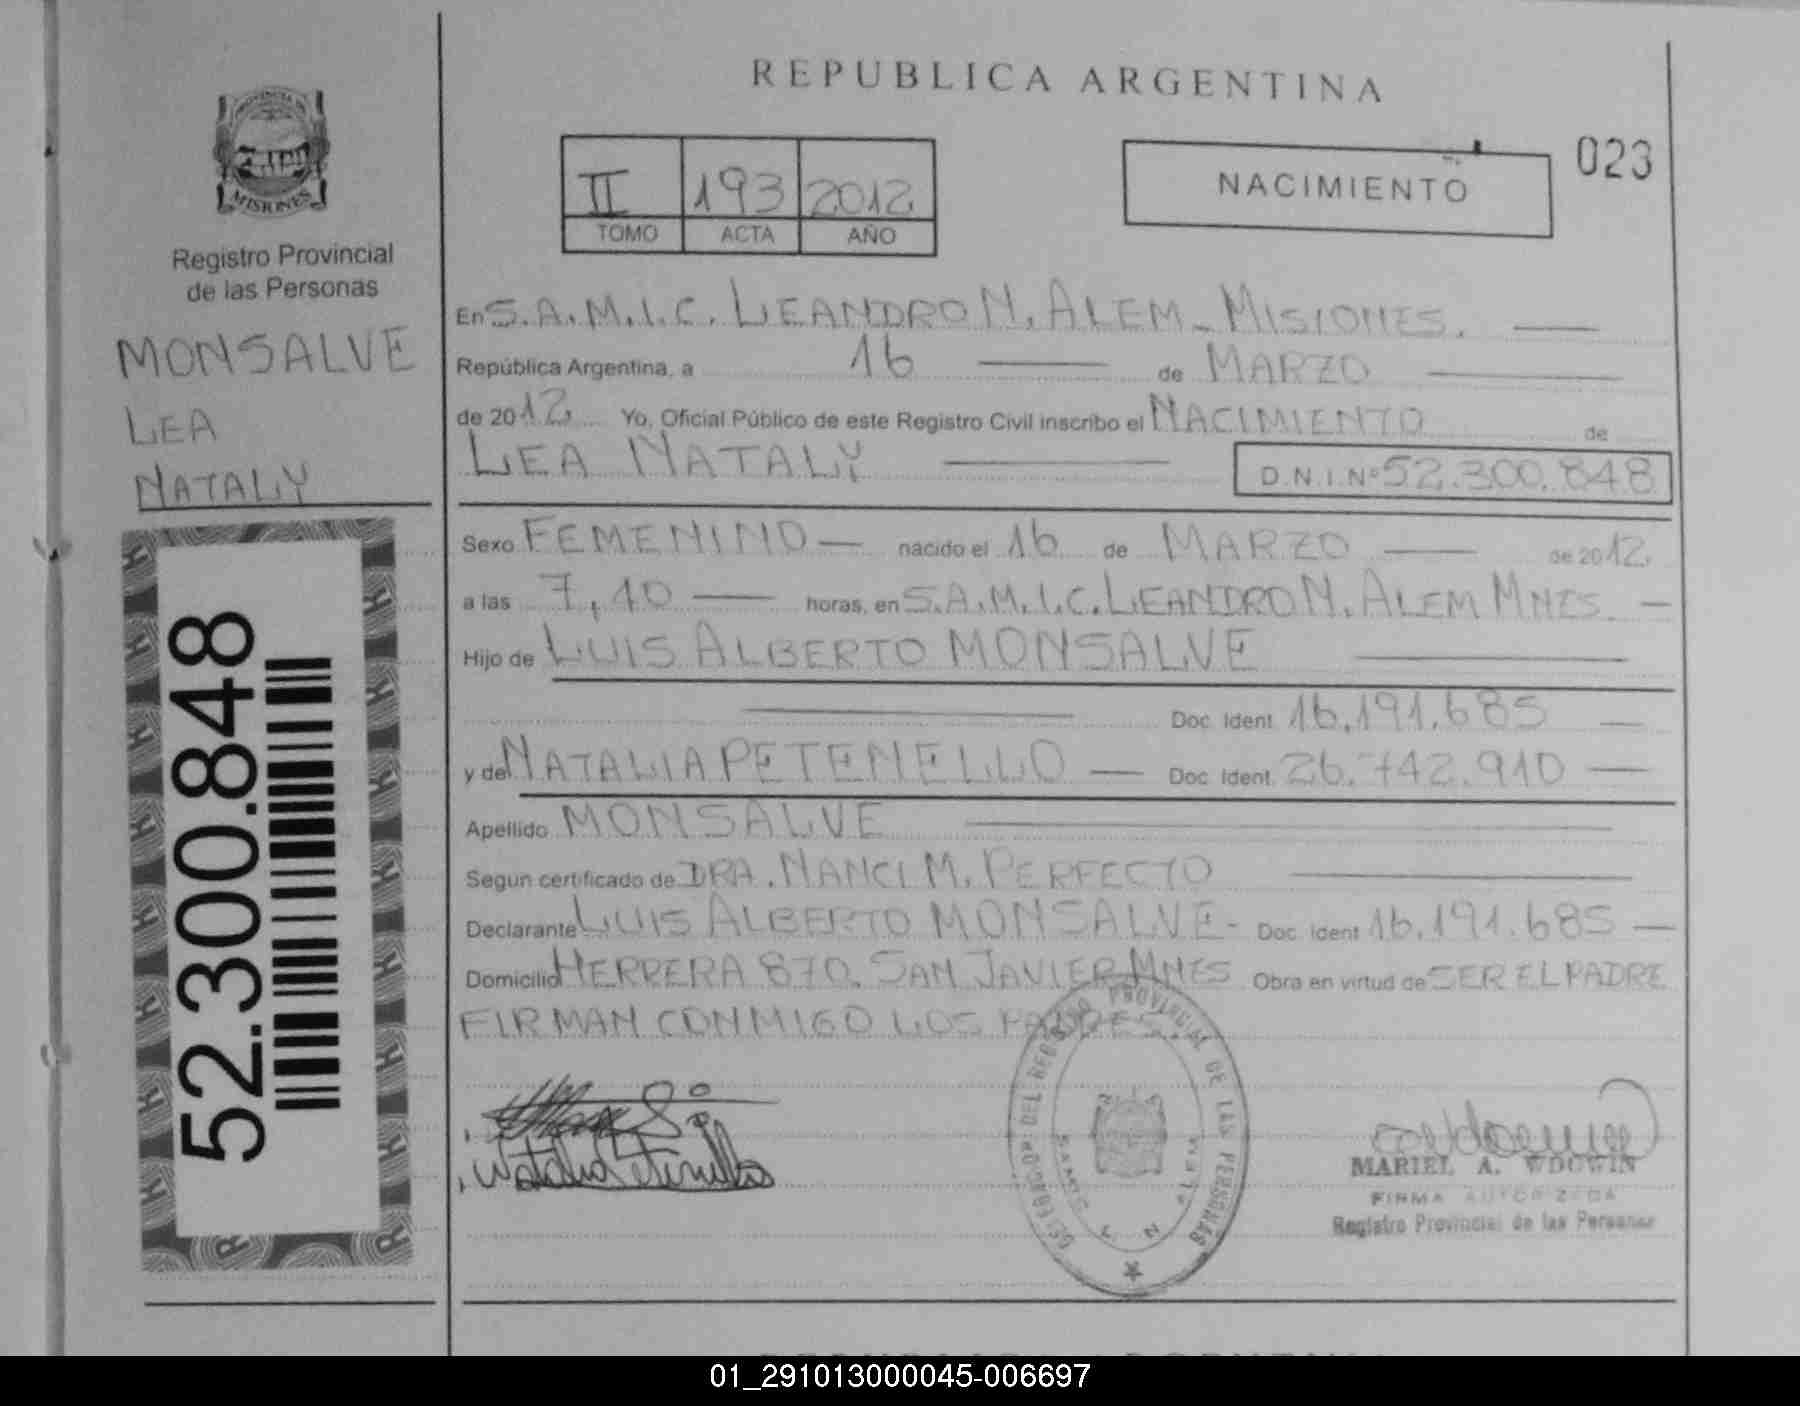 REPUBLICA ARGENTINA
PROVINCIA DE
MISIONES
Registro Provincial
de las Personas
MONSALVE
LEA
NATALY
52.300.848
II 193 2012
TOMO ACTA AÑO
NACIMIENTO
023
En S.A.M.I.C. LEANDRO N. ALEM - MISIONES.
República Argentina, a 16 de MARZO
de 2012 Yo, Oficial Público de este Registro Civil inscribo el NACIMIENTO de
LEA NATALY D.N.I.Nº 52.300.848
Sexo FEMENINO — nacido el 16 de MARZO de 2012.
a las 7,40 horas, en S.A.M.I.C. LEANDRO N. ALEM MNES. —
Hijo de LUIS ALBERTO MONSALVE
Doc. Ident. 16.191.685
y de NATALIA PETENELLO — Doc. Ident. 26.742.910
Apellido MONSALVE
Segun certificado de DRA. NANCI M. PERFECTO
Declarante LUIS ALBERTO MONSALVE - Doc. Ident. 16.191.685 —
Domicilio HERRERA 870. SAN JAVIER MNES Obra en virtud de SER EL PADRE
FIRMAN CONMIGO LOS PADRES.
DEL REGISTRO PROVINCIAL DE LAS PERSONAS
L N ALEM
MARIEL A. WDOWIN
FIRMA AUTORIZADA
Registro Provincial de las Personas
01_291013000045-006697